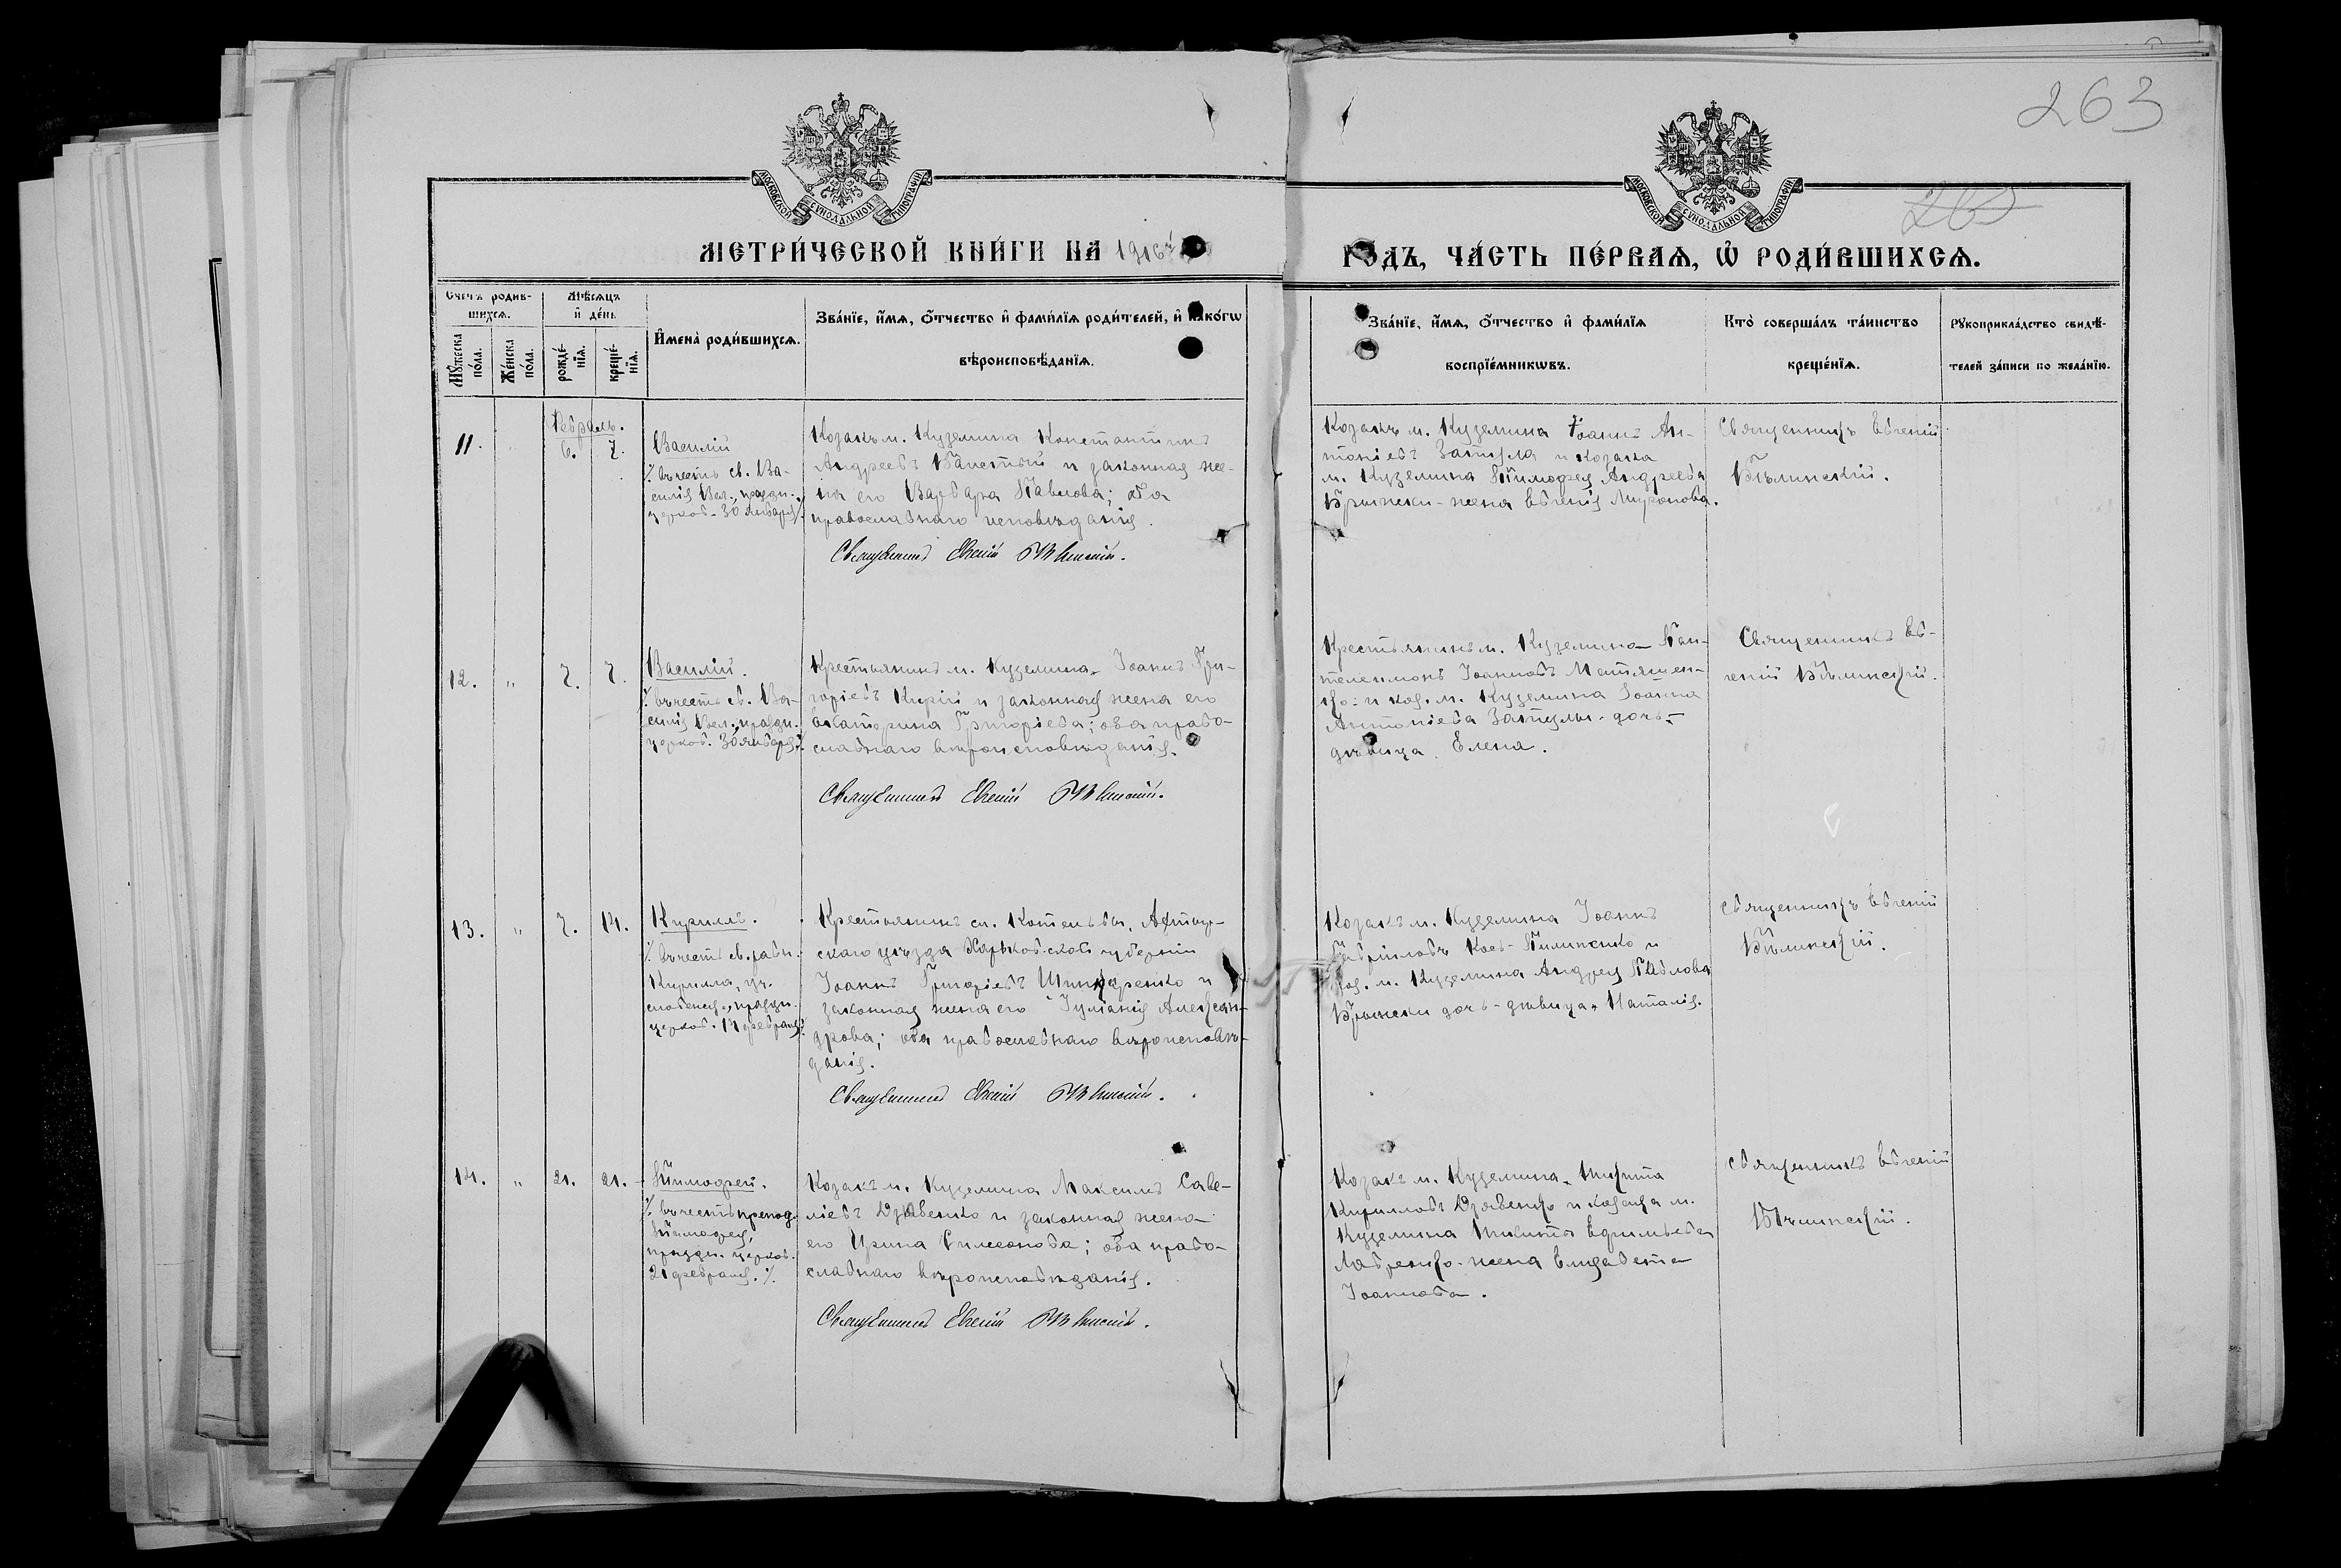 263
263
МОСКОВСКОЙ СѴНОДАЛЬНОЙ ТИПОГРАФІИ
МОСКОВСКОЙ СѴНОДАЛЬНОЙ ТИПОГРАФІИ
МЕТРИ́ЧЕСКОЙ КНИ́ГИ НА 1916й
ГОДЪ, ЧА́СТЬ ПЕ́РВАѦ, Ѽ РОДИ́ВШИХСѦ.
Счетъ родив-
шихсѧ.
Мꙋ́жеска по́ла.
Же́нска по́ла.
Мѣ́сѧцъ
и҆ де́нь
рожде́-
нїѧ.
креще́-
нїѧ.
И҆мена̀ роди́вшихсѧ.
Зва́нїе, и҆́мѧ, ѻ҆́тчество и҆ фами́лїѧ роди́телей, и҆ како́гѡ
вѣроисповѣ́данїѧ.
Зва́нїе, и҆́мѧ, ѻ҆́тчество и҆ фами́лїѧ
воспрїе́мникѡвъ.
Кто̀ соверша́лъ та́инство
креще́нїѧ.
Рꙋкоприкла́дство свидѣ́-
телей за́писи по жела́нїю.
Февраль.
11.
6. 7.
Василій
/. въ честь св. Ва-
силія Вел., праздн.
церков. 30 января/.
Козакъ м. Куземина Константинъ
Андреевъ и законная же-
на его Варвара Павлова; оба
православнаго исповѣданія.
Священникъ Евгеній Бѣлинскій.
Козакъ м. Куземина Іоаннъ Ан-
тоніевъ Запула и козака
м. Куземина Тимофея Андреева
Брыжки - жена Евгенія Миронова.
Священникъ Евгеній
Бѣлинскій.
12. " 7. 7.
Василій.
/. въ честь св. Ва-
силія Вел., праздн.
церков. 30 января/.
Крестьянинъ м. Куземина Іоаннъ Гри-
горіевъ Кирій и законная жена его
Екатерина Григоріева; оба право-
славнаго вѣроисповѣданія.
Священникъ Евгеній Бѣлинскій.
Крестьянинъ м. Куземина Пан-
телеимонъ Іоанновъ Матяшен-
ко и коз. м. Куземина Іоанна
Антоніева Запулы - дочь-
дѣвица Елена.
Священникъ Ев-
геній Бѣлинскій.
13. " 7. 14.
Кириллъ.
/. въ честь св. равн.
Кирилла, уч.
словенск., праздн.
церков. 14 февраля/.
Крестьянинъ сл. Котельвы, Ахтыр-
скаго уѣзда Харьковской губерніи
Іоаннъ Григоріевъ Шинкаренко и
законная жена его Іуліанія Алексан-
дрова; оба православнаго вѣроисповѣ-
данія.
Священникъ Евгеній Бѣлинскій.
Козакъ м. Куземина Іоаннъ
Гавріиловъ Пилипенко и
коз. м. Куземина Андрея Павлова
Брыжки дочь - дѣвица Наталія.
Священникъ Евгеній
Бѣлинскій.
14. " 21. 21.
Тимофей.
/. въ честь препод.
Тимофея,
праздн. церков.
21 февраля. /.
Козакъ м. Куземина Максимъ Саве-
ліевъ Дзявенко и законная жена
его Ирина Симеонова; оба право-
славнаго вѣроисповѣданія.
Священникъ Евгеній Бѣлинскій.
Козакъ м. Куземина Никита
Кирилловъ Дзявенко и козака м.
Куземина Никиты
Лавренко - жена Елизавета
Іоаннова.
Священникъ Евгеній
Бѣлинскій.